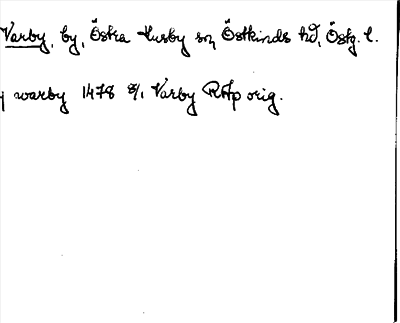 Varby, by, Östra Husby sn, Östkinds hd, Östg. l.
j warby 1478 8/1 Varby RAp orig.